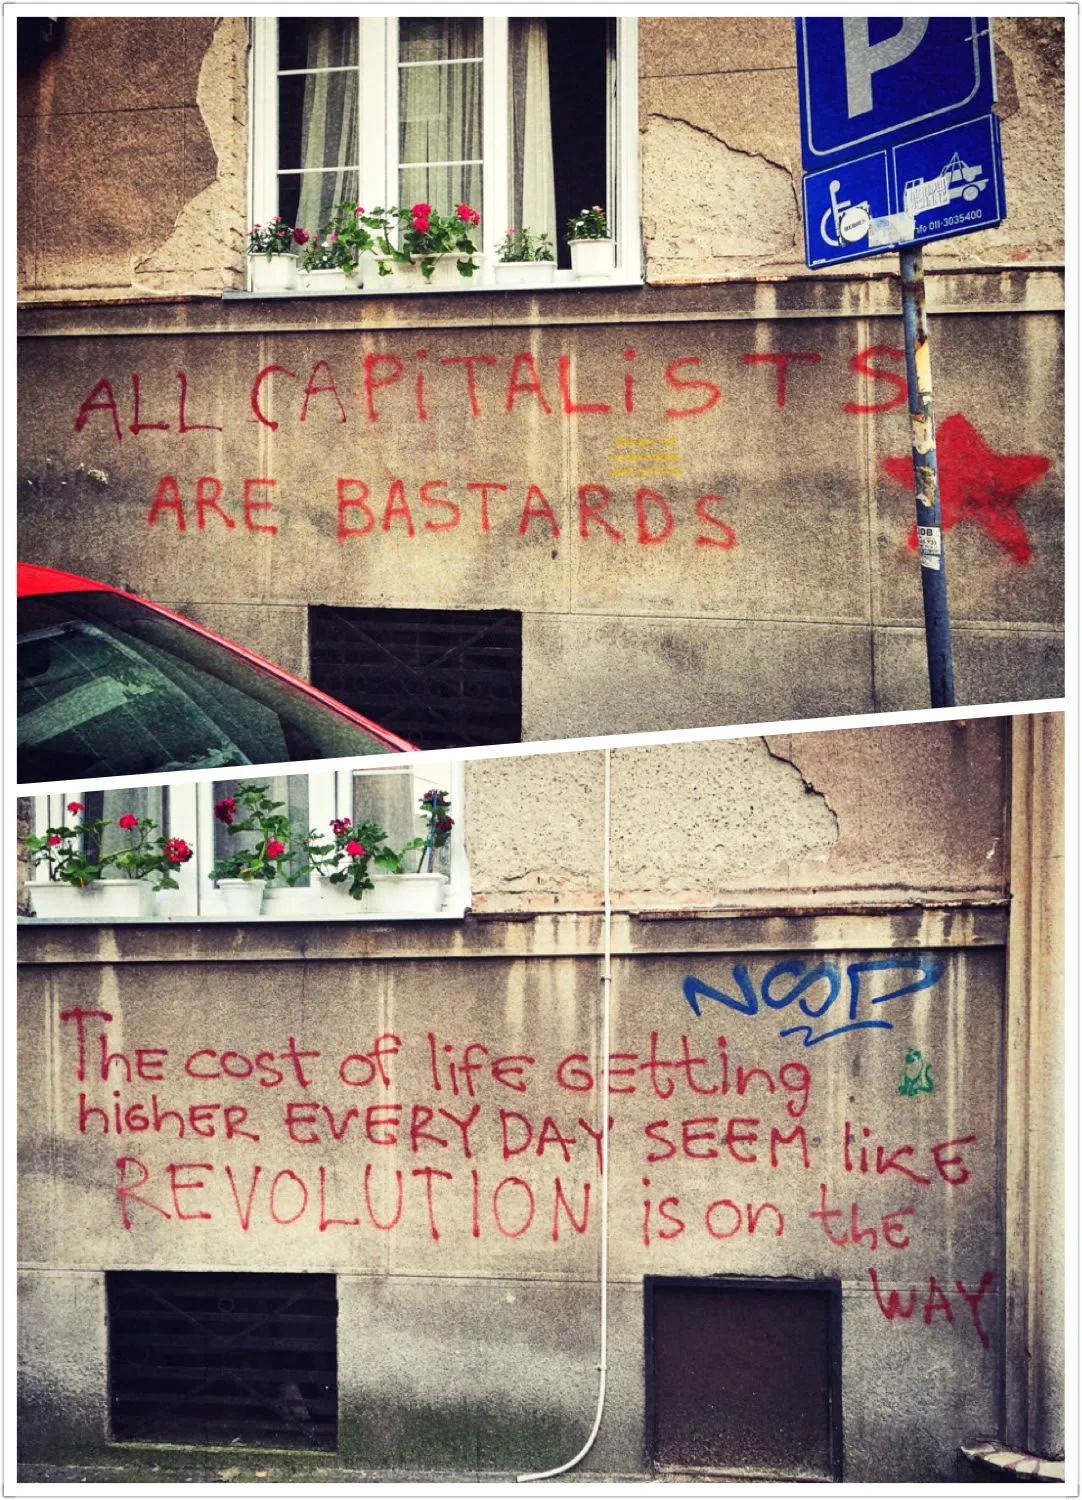 P
info 011-3035400
ALL CAPiTALiSTS
ARE BASTARDS
The cost of life GEtting
higher EVERY DAY SEEM like
REVOLUTION is on the
WAY